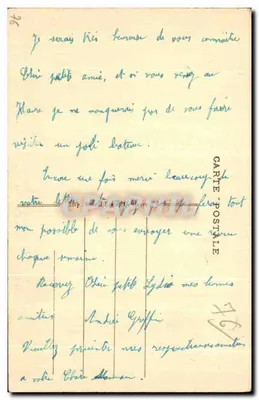 76
Je serais très heureux de vous connaître
Chère petite amie, et si vous venez au
Havre je ne manquerai pas de vous faire
visiter un joli bateau.
Encore une fois merci beaucoup de
votre lettre
tout
mon possible de vous envoyer une
chaque semaine.
Recevez Chère petite Lydia mes bonnes
amitiés André Griffin
Veuillez mes
à votre Chère Maman.
CARTE POSTALE
76